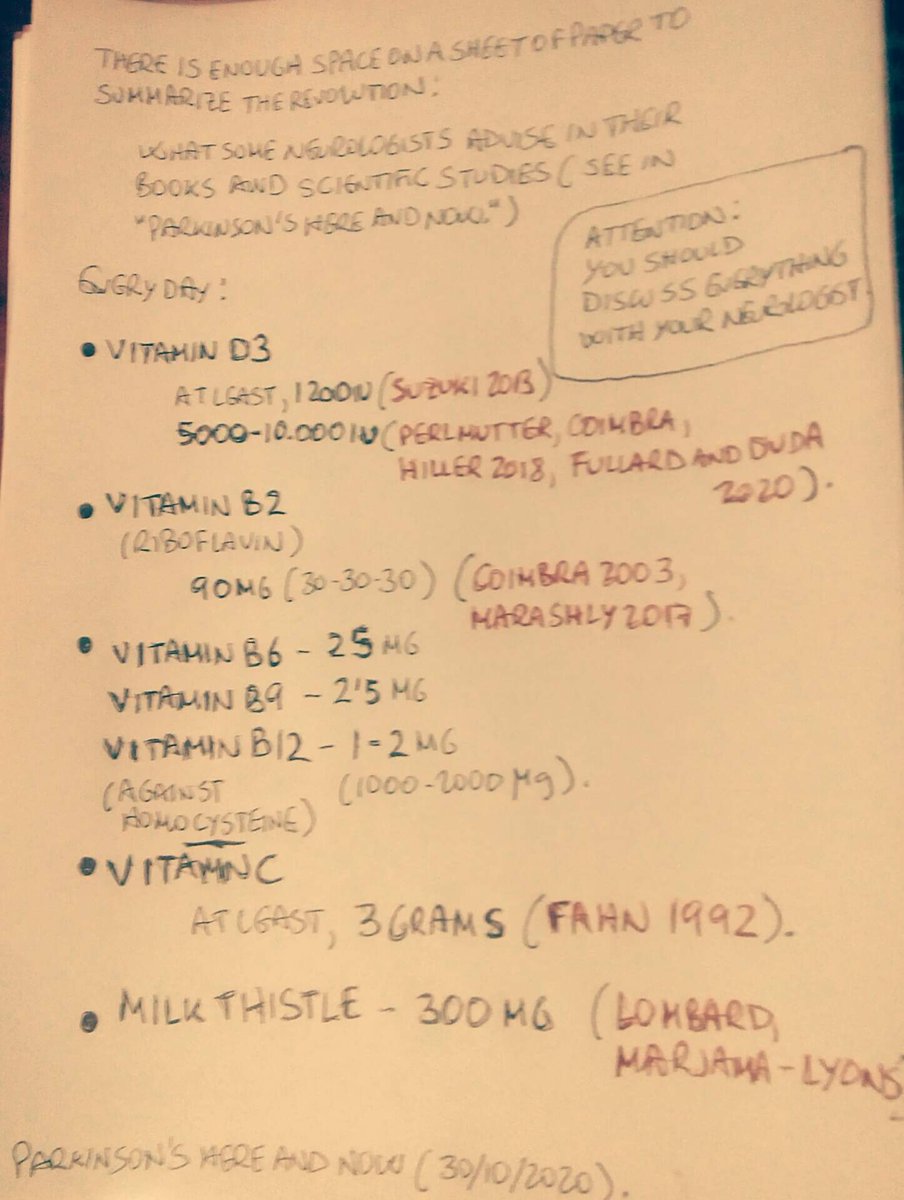 THERE IS ENOUGH SPACE ON A SHEET OF PAPER TO
SUMMARIZE THE REVOLUTION:
WHAT SOME NEUROLOGISTS ADVISE IN THEIR
BOOKS AND SCIENTIFIC STUDIES (SEE IN
"PARKINSON'S HERE AND NOW.")
ATTENTION:
YOU SHOULD
DISCUSS EVERYTHING
WITH YOUR NEUROLOGIST
EVERY DAY:
• VITAMIN D3
AT LEAST, 1200 IU (SUZUKI 2013)
5000-10.000 IU (PERLMUTTER, COIMBRA,
HILLER 2018, FULLARD AND DUDA
2020).
• VITAMIN B2
(RIBOFLAVIN)
90 MG (30-30-30) (COIMBRA 2003,
MARASHLY 2017).
• VITAMIN B6 - 25 MG
VITAMIN B9 - 2'5 MG
VITAMIN B12 - 1-2 MG
(AGAINST (1000-2000 μg).
HOMOCYSTEINE)
• VITAMIN C
AT LEAST, 3 GRAMS (FAHN 1992).
• MILK THISTLE - 300 MG (LOMBARD,
MARJAMA-LYONS
PARKINSON'S HERE AND NOW (30/10/2020).